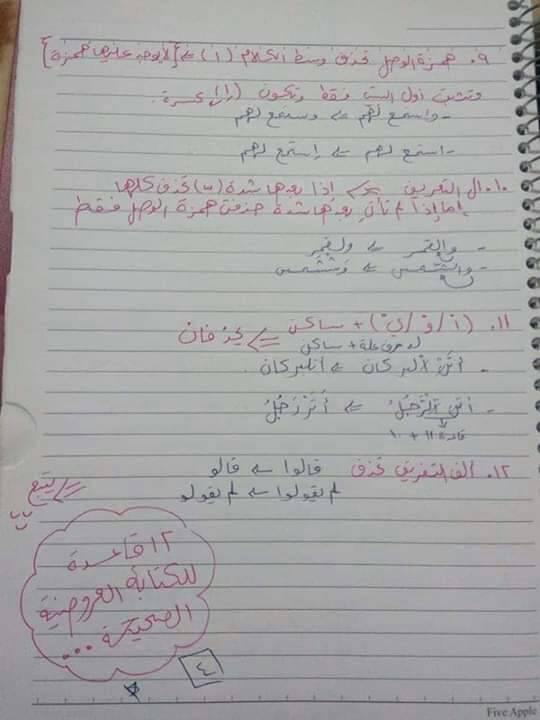 ٩. همزة الوصل تحذف وسط الكلام (ا) <= [لا يوجد عليها همزة]
وتثبت أول البيت فقط وتكون (إ) بكسرة.
- واستمع لهم <= وستمع لهم
- استمع لهم <= إستمع لهم
١٠. ال التعريف <= إذا بعدها شدة (ّ) تحذف كلها
إما إذا لم تأتي بعدها شدة حذفت همزة الوصل فقط
- والقمر <= ولقمر
- والشّمس <= وَشْشمس
١١. (اْ / وْ / يْ) + ساكن <= يحذفان
حرف علة + ساكن
- أتى البركان <= أتلبركان
- أتى الرَّجُلُ <= أَتَرْرَجُلُ
قاعدة ١١ + ١٠
١٢. ألف التفريق تحذف قالوا <= قالو
لم يقولوا <= لم يقولو
<= يتبع
١٢ قاعدة
للكتابة العروضية
الصحيحة ...
٤
Five Apple